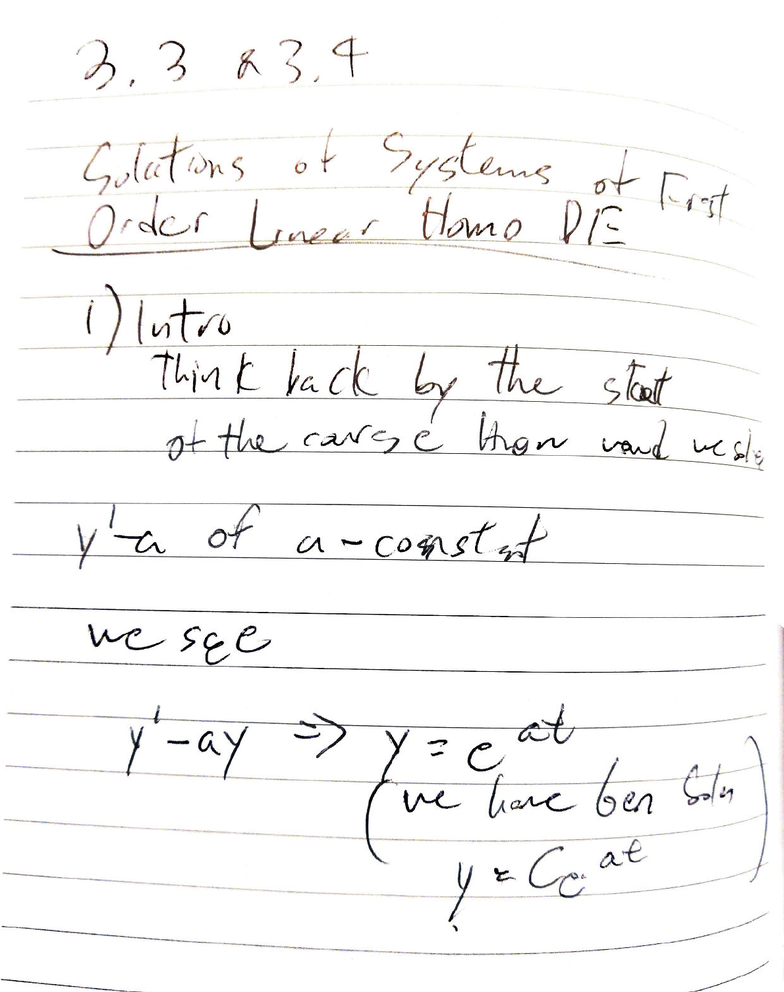 3.3 & 3.4
Solutions of Systems of First
Order Linear Homo D/E
1) Intro
Think back by the start
of the carse we
y'-a of a-constant
we see
y'-ay => y = e^at
(we have Gen Soln
y = Ce^at)